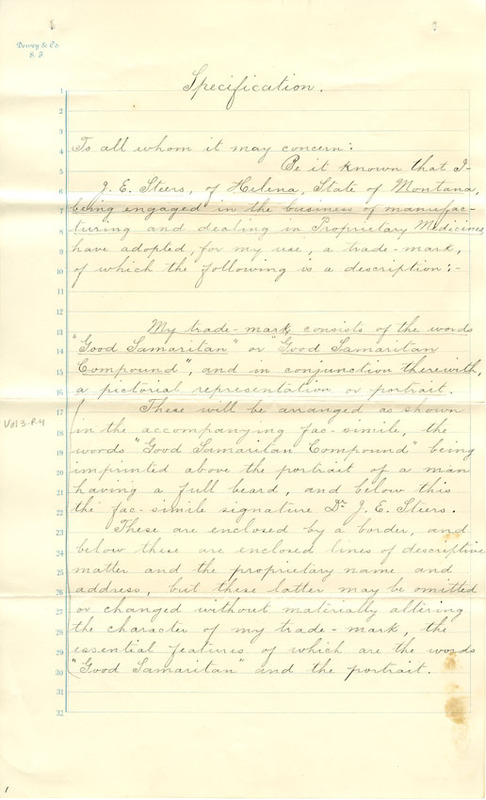 Dewey & Co.
S. F.
Specification.
1
2
3
4 To all whom it may concern:
5 Be it known that I
6 J. E. Steers, of Helena, State of Montana,
7 being engaged in the business of manufac-
8 turing and dealing in Proprietary Medicines,
9 have adopted, for my use, a trade-mark,
10 of which the following is a description:-
11
12
13 My trade-mark consists of the words
14 "Good Samaritan" or "Good Samaritan
15 Compound", and in conjunction therewith,
16 a pictorial representation or portrait.
17 These will be arranged as shown
Vol 3-P.4
18 in the accompanying fac-simile, the
19 words "Good Samaritan Compound" being
20 imprinted above the portrait of a man
21 having a full beard, and below this
22 the fac-simile signature Dr J. E. Steers.
23 These are enclosed by a border, and
24 below these are enclosed lines of descriptive
25 matter and the proprietary name and
26 address, but these latter may be omitted
27 or changed without materially altering
28 the character of my trade-mark, the
29 essential features of which are the words
30 "Good Samaritan" and the portrait.
31
32
1